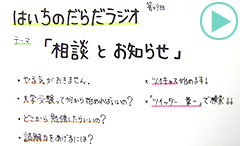 はいちのだらだラジオ 第49回
テーマ
「相談 と お知らせ」
・やる気がおきません.
・大学受験って何から始めればいいの?
・どこから勉強したらいいの?
・読解力をあげるには?
× ツイキャス始めます!
× "ツイッター 葉一" で検索↓↓